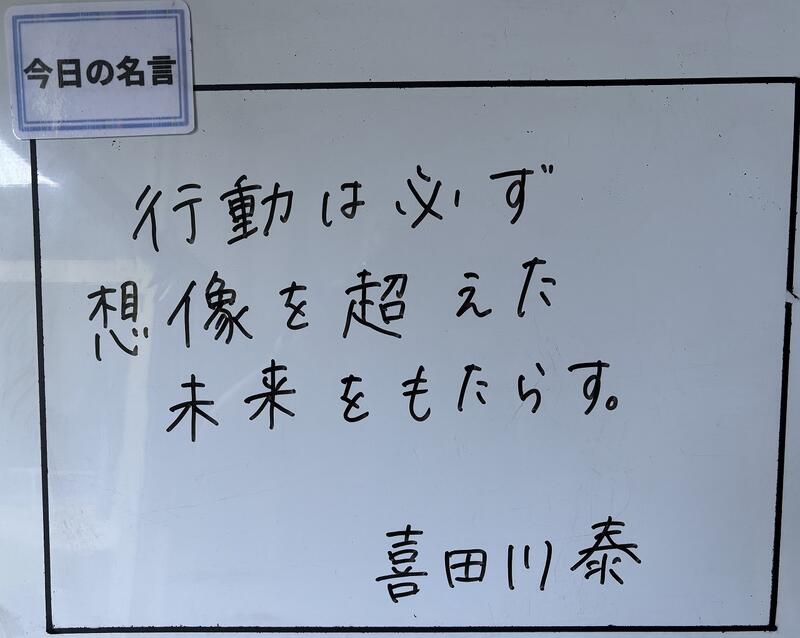 今日の名言
行動は必ず
想像を超えた
未来をもたらす。
喜田川泰